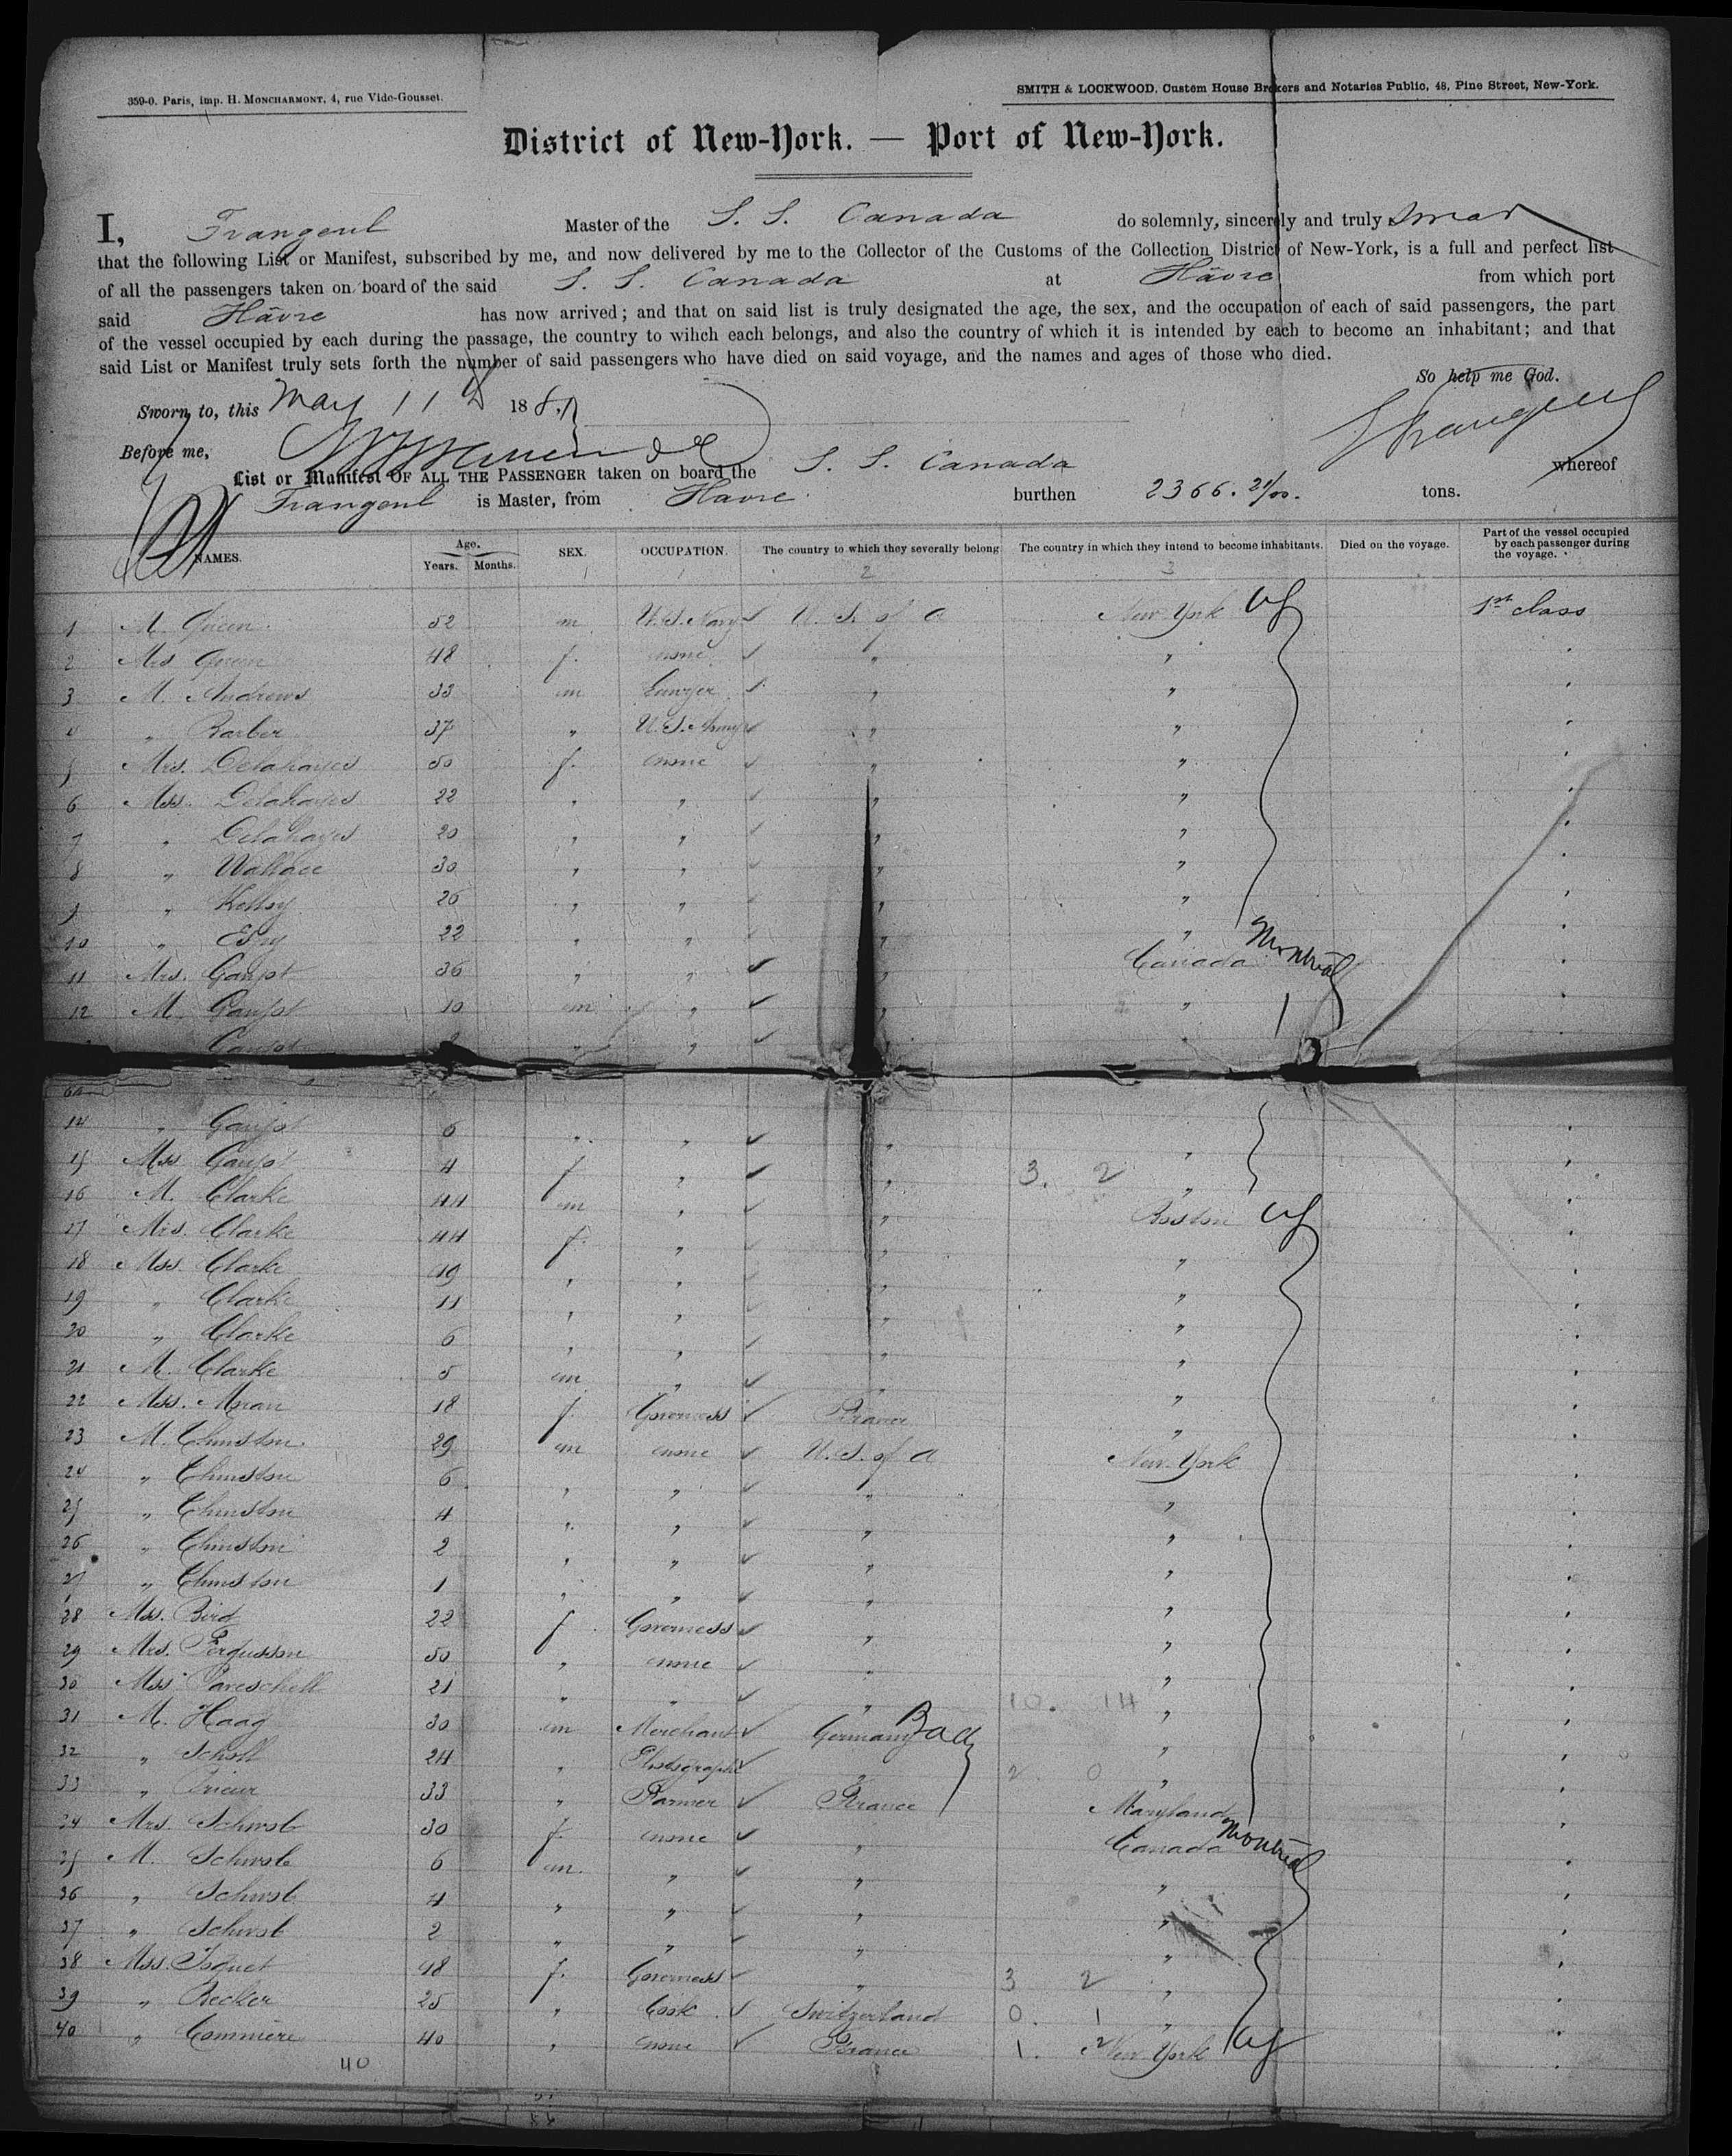 359-0. Paris, imp. H. MONCHARMONT, 4, rue Vide-Gousset.
SMITH & LOCKWOOD, Custom House Brokers and Notaries Public, 48, Pine Street, New-York.
District of New-York. — Port of New-York.
I, Frangeul Master of the S. S. Canada do solemnly, sincerely and truly swear
that the following List or Manifest, subscribed by me, and now delivered by me to the Collector of the Customs of the Collection District of New-York, is a full and perfect list
of all the passengers taken on board of the said S. S. Canada at Hâvre from which port
said Hâvre has now arrived; and that on said list is truly designated the age, the sex, and the occupation of each of said passengers, the part
of the vessel occupied by each during the passage, the country to wihch each belongs, and also the country of which it is intended by each to become an inhabitant; and that
said List or Manifest truly sets forth the number of said passengers who have died on said voyage, and the names and ages of those who died.
So help me God.
Sworn to, this May 11 188
Frangeul
Before me,
List or Manifest OF ALL THE PASSENGER taken on board the S. S. Canada whereof
Frangeul is Master, from Havre burthen 2366. 21/00. tons.
NAMES. Age. Years. Months. SEX. OCCUPATION. The country to which they severally belong The country in which they intend to become inhabitants. Died on the voyage. Part of the vessel occupied by each passenger during the voyage.
1 M. Green 52 m U.S. Navy U. S. of A New York 1st class
2 Mrs Green 48 f. none " "
3 M. Andrews 33 m Lawyer " "
4 " Barber 37 " U.S. Army " "
5 Mrs. Delahayes 50 f. none " "
6 Mss. Delahayes 22 " " " "
7 " Delahayes 20 " " " "
8 " Wallace 30 " " " "
9 " Kelley 26 " " " "
10 " Espy 22 " " " "
11 Mrs. 36 " " " Canada Montreal
12 M. 10 m " " "
14 " 6 " " " "
15 Mss 4 f " " 3. 2 "
16 M. Clarke 44 m " " Boston
17 Mrs. Clarke 44 f. " " "
18 Mss. Clarke 19 " " " "
19 " Clarke 11 " " " "
20 " Clarke 6 " " " "
21 M. Clarke 5 m " " "
22 Mss. Moran 18 f. Governess France "
23 M. 29 m none U. S. of A New York
24 " 6 " " " "
25 " 4 " " " "
26 " 2 " " " "
27 " 1 " " " "
28 Mss. Bird 22 f. Governess " "
29 Mrs. Fergusson 50 " none " "
30 Mss Pareschell 21 " " " 10. 14 "
31 M. Haag 30 m Merchant Germany "
32 " Scholl 24 " " 2. 0 "
33 " Prieur 33 " Farmer France Maryland
34 Mrs. Schwob 30 f. none " Canada Montreal
35 M. Schwob 6 m. " " "
36 " Schwob 4 " " " "
37 " Schwob 2 " " " "
38 Mss. 48 f. Governess " 3 2 "
39 " Becker 25 " Cook Switzerland 0. 1 "
40 " Commière 40 " none France 1. 2 New York
40